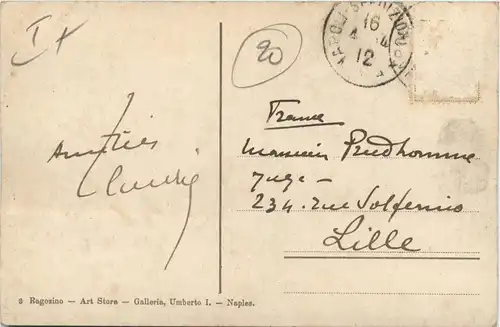 IX
20
NAPOLI
16
4
12
Amitiés
Claudie
France
Monsieur Prudhomme
Juge —
234. rue Solferino
Lille
3 Ragozino — Art Store — Galleria, Umberto I. — Naples.